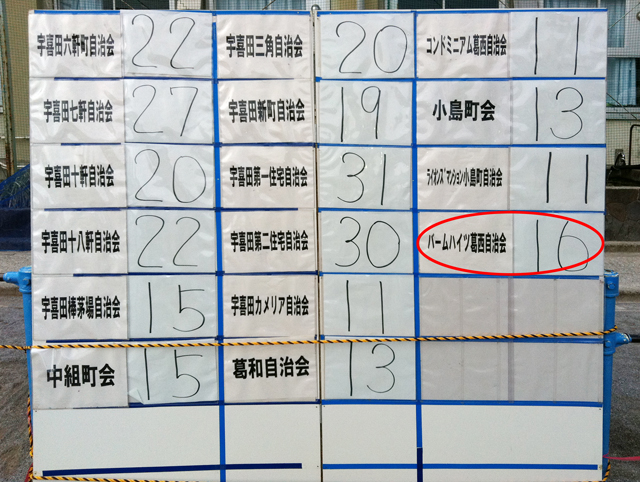 宇喜田六軒町自治会 22
宇喜田七軒自治会 27
宇喜田十軒自治会 20
宇喜田十八軒自治会 22
宇喜田棒茅場自治会 15
中組町会 15
宇喜田三角自治会 20
宇喜田新町自治会 19
宇喜田第一住宅自治会 31
宇喜田第二住宅自治会 30
宇喜田カメリア自治会 11
葛和自治会 13
コンドミニアム葛西自治会 11
小島町会 13
ライオンズマンション小島町自治会 11
パームハイツ葛西自治会 16